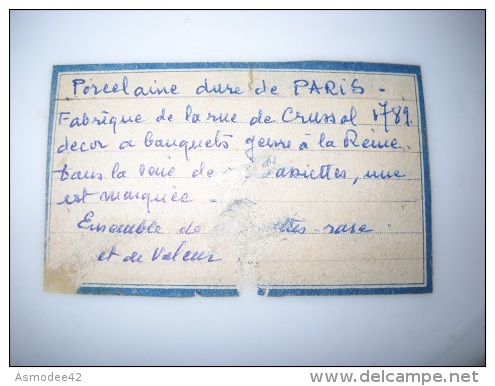 Porcelaine dure de PARIS -
Fabrique de la rue de Crussol 1789.
decor a banquets genre à la Reine.
Dans la série de assiettes, une
est marquée -
Ensemble de rare
et de Valeur
Asmodee42
http://www.delcampe.net